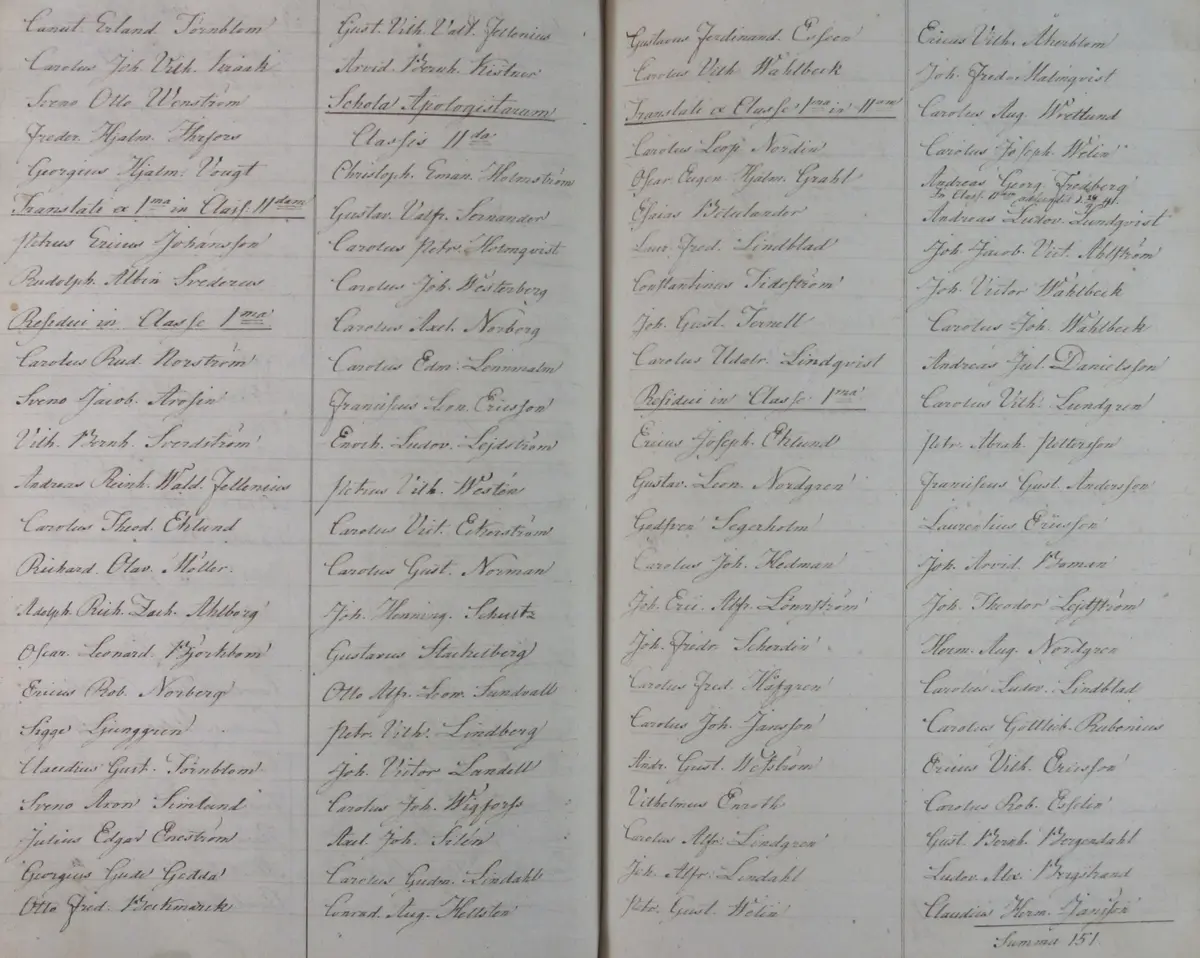 Canut Erland Törnblom
Carolus Joh. Vilh. Isaak
Sveno Otto Wenström
Freder. Hjalm. Thefors
Georgius Hjalm. Vougt
Translati ex 1ma in Class. 11dam
Petrus Ericus Johansson
Rudolph. Albin Svederus
Residui in Classe 1ma
Carolus Rud. Norström
Sveno Jacob. Arosin
Vilh. Bernh. Sverdström
Andreas Reinh. Wald. Fellenius
Carolus Theod. Eklund
Richard. Olav. Möller.
Adolph. Rich. Zach. Ahlborg
Oscar. Leonard. Björkbom
Ericus Rob. Norberg
Sigge Ljunggren
Claudius Gust. Törnblom
Sveno Aron Simlund
Julius Edgar Eneström
Georgius Gude Gedda
Otto Fred. Beckmarck
Gust. Vilh. Valf. Fellenius
Arvid Bernh. Kistner
Schola Apologistarum
Classis 11da
Christoph. Eman. Holmström
Gustav. Valfr. Sernander
Carolus Petr. Holmqvist
Carolus Joh. Westerberg
Carolus Axel. Norberg
Carolus Edm. Lennmalm
Franciscus Leon. Ericsson
Enoch. Ludov. Lejdström
Petrus Vilh. Westin
Carolus Vict. Eckerström
Carolus Gust. Norman
Joh. Henning. Schultz
Gustavus Stackelberg
Otto Alfr. Leon. Sundvall
Petr. Vilh. Lindberg
Joh. Victor Landell
Carolus Joh. Wigforss
Axel. Joh. Silén
Carolus Gudm. Lindahl
Conrad. Aug. Hellsten
Gustavus Ferdinand. Ersson
Carolus Vilh Wahlbeck
Translati ex Classe 1ma in 11am
Carolus Leop. Nordin
Oscar. Eugen Hjalm. Grahl
Esaias Betulander
Laur. Fred. Lindblad
Constantinus Tideström
Joh. Gust. Ternell
Carolus Udalr. Lindqvist
Residui in Classe 1ma
Ericus Joseph. Eklund
Gustav. Leon. Nordgren
Godfred Segerholm
Carolus Joh. Hedman
Joh. Eric. Alfr. Lönnström
Joh. Fredr. Scherdin
Carolus Fred. Häfgren
Carolus Joh. Jansson
Andr. Gust. Wesström
Vilhelmus Enroth
Carolus Alfr. Lindgren
Joh. Alfr. Lindahl
Petr. Gust. Welin
Ericus Vilh. Åkerblom
Joh. Fredr. Malmqvist
Carolus Aug. Wretlund
Carolus Joseph. Welin
Andreas Georg. Fredberg
In Class. 11am
Andreas Ludov. Lundqvist
Joh. Jacob. Vict. Ahlström
Joh. Victor Wahlbeck
Carolus Joh. Wahlbeck
Andreas Jul. Danielsson
Carolus Vilh. Lundgren
Petr. Abrah. Pettersson
Franciscus Gust. Andersson
Laurentius Ericsson
Joh. Arvid. Boman
Joh. Theodor Lejdström
Herm. Aug. Nordgren
Carolus Ludov. Lindblad
Carolus Gottlieb. Rubenius
Ericus Vilh. Ericsson
Carolus Rob. Esselin
Gust. Bernh. Bergendahl
Ludov. Alex. Bergstrand
Claudius Herm. Jansson
Summa 151.